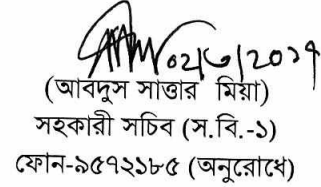 ০২/৩/২০১৭
(আবদুস সাত্তার মিয়া)
সহকারী সচিব (স.বি.-১)
ফোন-৯৫৭২১৮৫ (অনুরোধে)